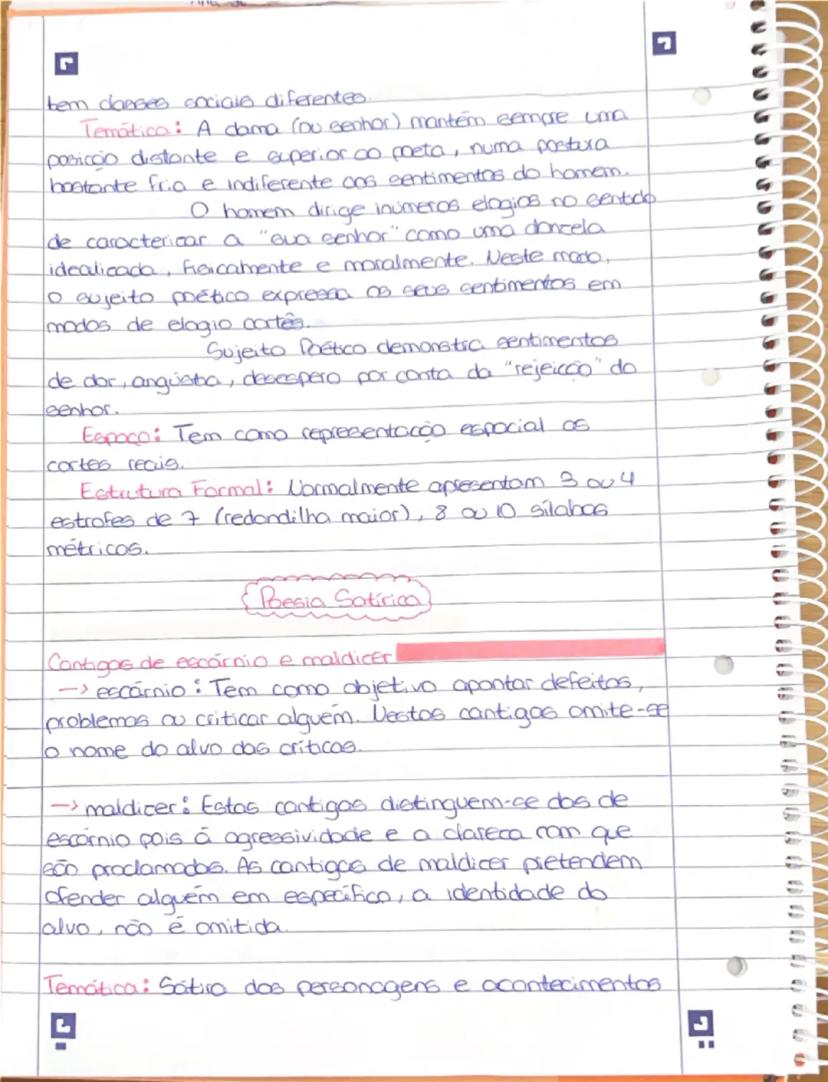 tem classes sociais diferentes.
Temática: A dama (ou senhor) mantém sempre uma
posição distante e superior ao poeta, numa postura
bastante fria e indiferente aos sentimentos do homem.
O homem dirige inúmeros elogios no sentido
de caracterizar a "sua senhor" como uma donzela
idealizada, fisicamente e moralmente. Neste modo,
o sujeito poético expressa os seus sentimentos em
modos de elogio cortês.
Sujeito Poético demonstra sentimentos
de dor, angústia, desespero por conta da "rejeição" do
senhor.
Espaço: Tem como representação espacial as
cortes reais.
Estrutura Formal: Normalmente apresentam 3 ou 4
estrofes de 7 (redondilha maior), 8 ou 10 sílabas
métricas.
Poesia Satírica
Cantigas de escárnio e maldizer
→ escárnio: Tem como objetivo apontar defeitos,
problemas ou criticar alguém. Nestas cantigas omite-se
o nome do alvo das críticas.
→ maldizer: Estas cantigas distinguem-se das de
escárnio pois á agressividade e a clareza com que
são proclamadas. As cantigas de maldizer pretendem
ofender alguém em específico, a identidade do
alvo, não é omitida.
Temática: Sátira das personagens e acontecimentos